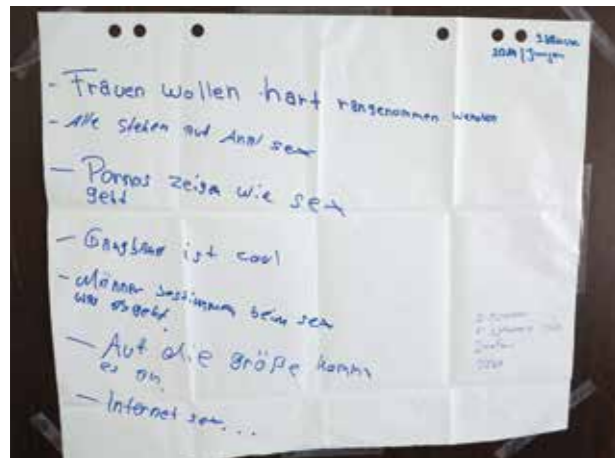 2014 | Jungen
- Frauen wollen hart rangenommen werden
- Alle stehen auf Anal sex
- Pornos zeigen wie sex
geht
- Gangbang ist cool
- Männer bestimmen beim sex
wo es geht.
- Auf die größe kommt
es an.
- Internet sex...